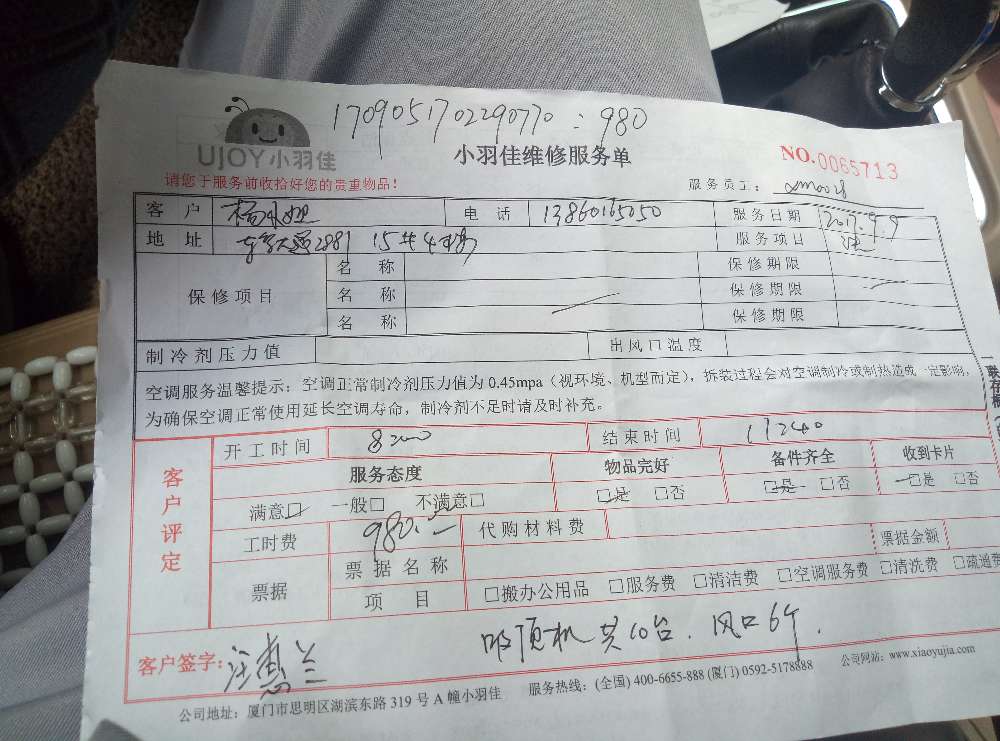 170905170290770:980
UJOY小羽佳
小羽佳维修服务单
NO.0065713
请您于服务前收拾好您的贵重物品!
服务员工: xm0028
客户 电话 13860165050 服务日期 2017.9.9
地址 2881 服务项目
保修项目
名称 保修期限
名称 保修期限
名称 保修期限
制冷剂压力值 出风口温度
空调服务温馨提示:空调正常制冷剂压力值为0.45mpa(视环境、机型而定),拆装过程会对空调制冷或制热造成一定影响,
为确保空调正常使用延长空调寿命,制冷剂不足时请及时补充。
客户评定
开工时间 8:00 结束时间 11:40
服务态度 物品完好 备件齐全 收到卡片
满意□ 一般□ 不满意□ □是 □否 □是 □否 □是 □否
工时费 980.00 代购材料费
票据 票据名称 票据金额
项目 □搬办公用品 □服务费 □清洁费 □空调服务费 □清洗费 □疏通费
吸顶机共10台.风口6个.
客户签字: 汪惠兰
公司地址:厦门市思明区湖滨东路319号A幢小羽佳 服务热线:(全国)400-6655-888(厦门)0592-5178888 公司网站:www.xiaoyujia.com